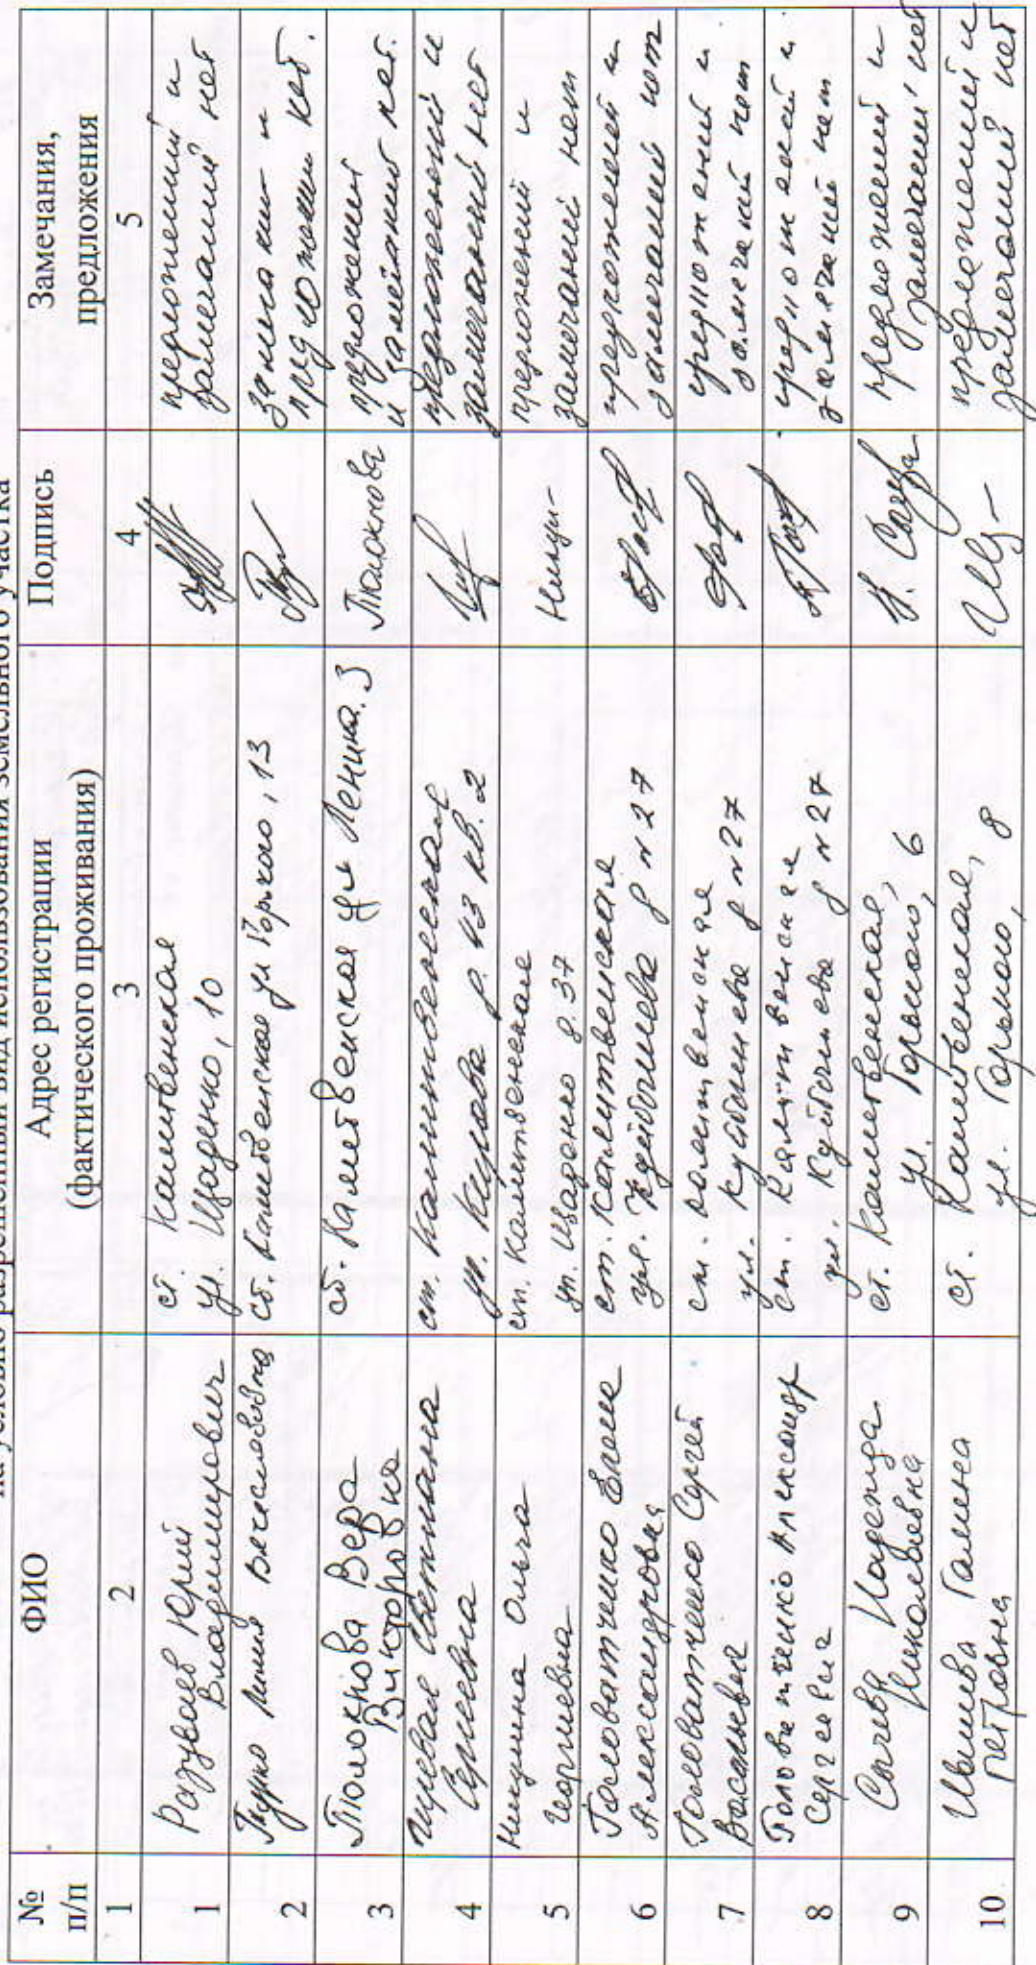 на условно разрешенный вид использования земельного участка
№ п/п ФИО Адрес регистрации (фактического проживания) Подпись Замечания, предложения
1 2 3 4 5
1 Разуваев Юрий Владимирович ст. Калитвенская ул. Щаденко, 10 предложений и замечаний нет
2 Лилия Вячеславовна ст. Калитвенская ул Горького, 13 нет.
3 Тюлюкнова Вера Викторовна ст. Калитвенская ул Ленина. 3 предложений и замечаний нет.
4 Светлана Сергеевна ст. Калитвенская ул. д. 13 кв. 2 предложений и замечаний нет
5 Никулина Ольга Георгиевна ст. Калитвенская ул. Щаденко д. 37 замечаний нет
6 Головатченко Елена Александровна ст. Калитвенская ул. Куйбышева д № 27 предложений и замечаний нет
7 Головатченко Сергей Васильевич ст. Калитвенская ул. д № 27 предложений и замечаний нет
8 Головатченко Александр ст. Калитвенская ул. Куйбышева д № 27 предложений и замечаний нет
9 Сычева Надежда Николаевна ст. Калитвенская, ул. Горького, 6 Н. предложений и замечаний нет
10 Галина Петровна ст. Калитвенская, ул. Горького, 8 предложений и замечаний нет